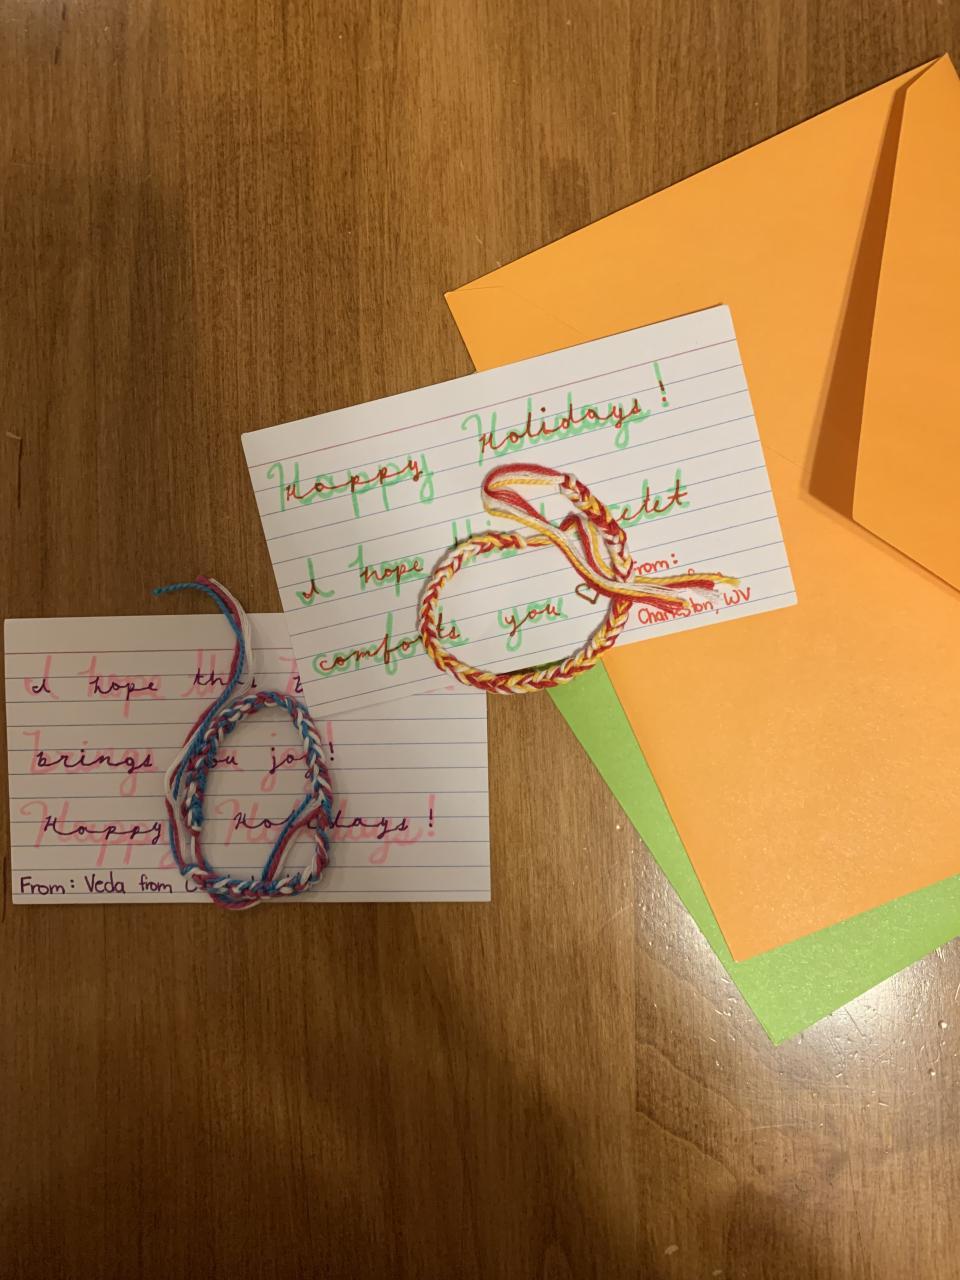 Happy Holidays!
I hope this
comforts you
From:
Charleston, WV
I hope
brings you joy!
Happy Holidays!
From: Veda from